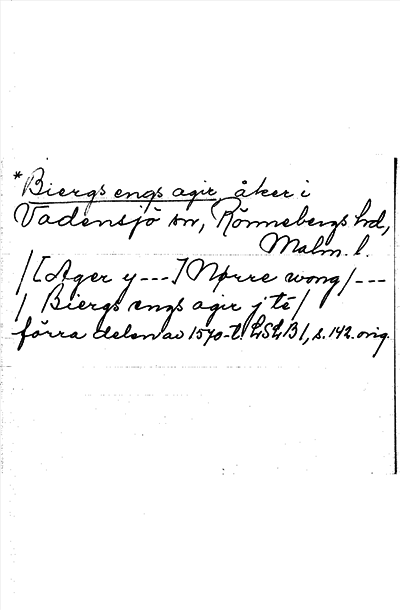 *Biergs engs agir, åker i
Vadensjö sn, Rönnebergs hd,
Malm. l.
/[Ager y---] Nørre wong/---
/ Biergs engs agir j te/
förra delen av 1570-t. LSLB 1, s. 142. orig.